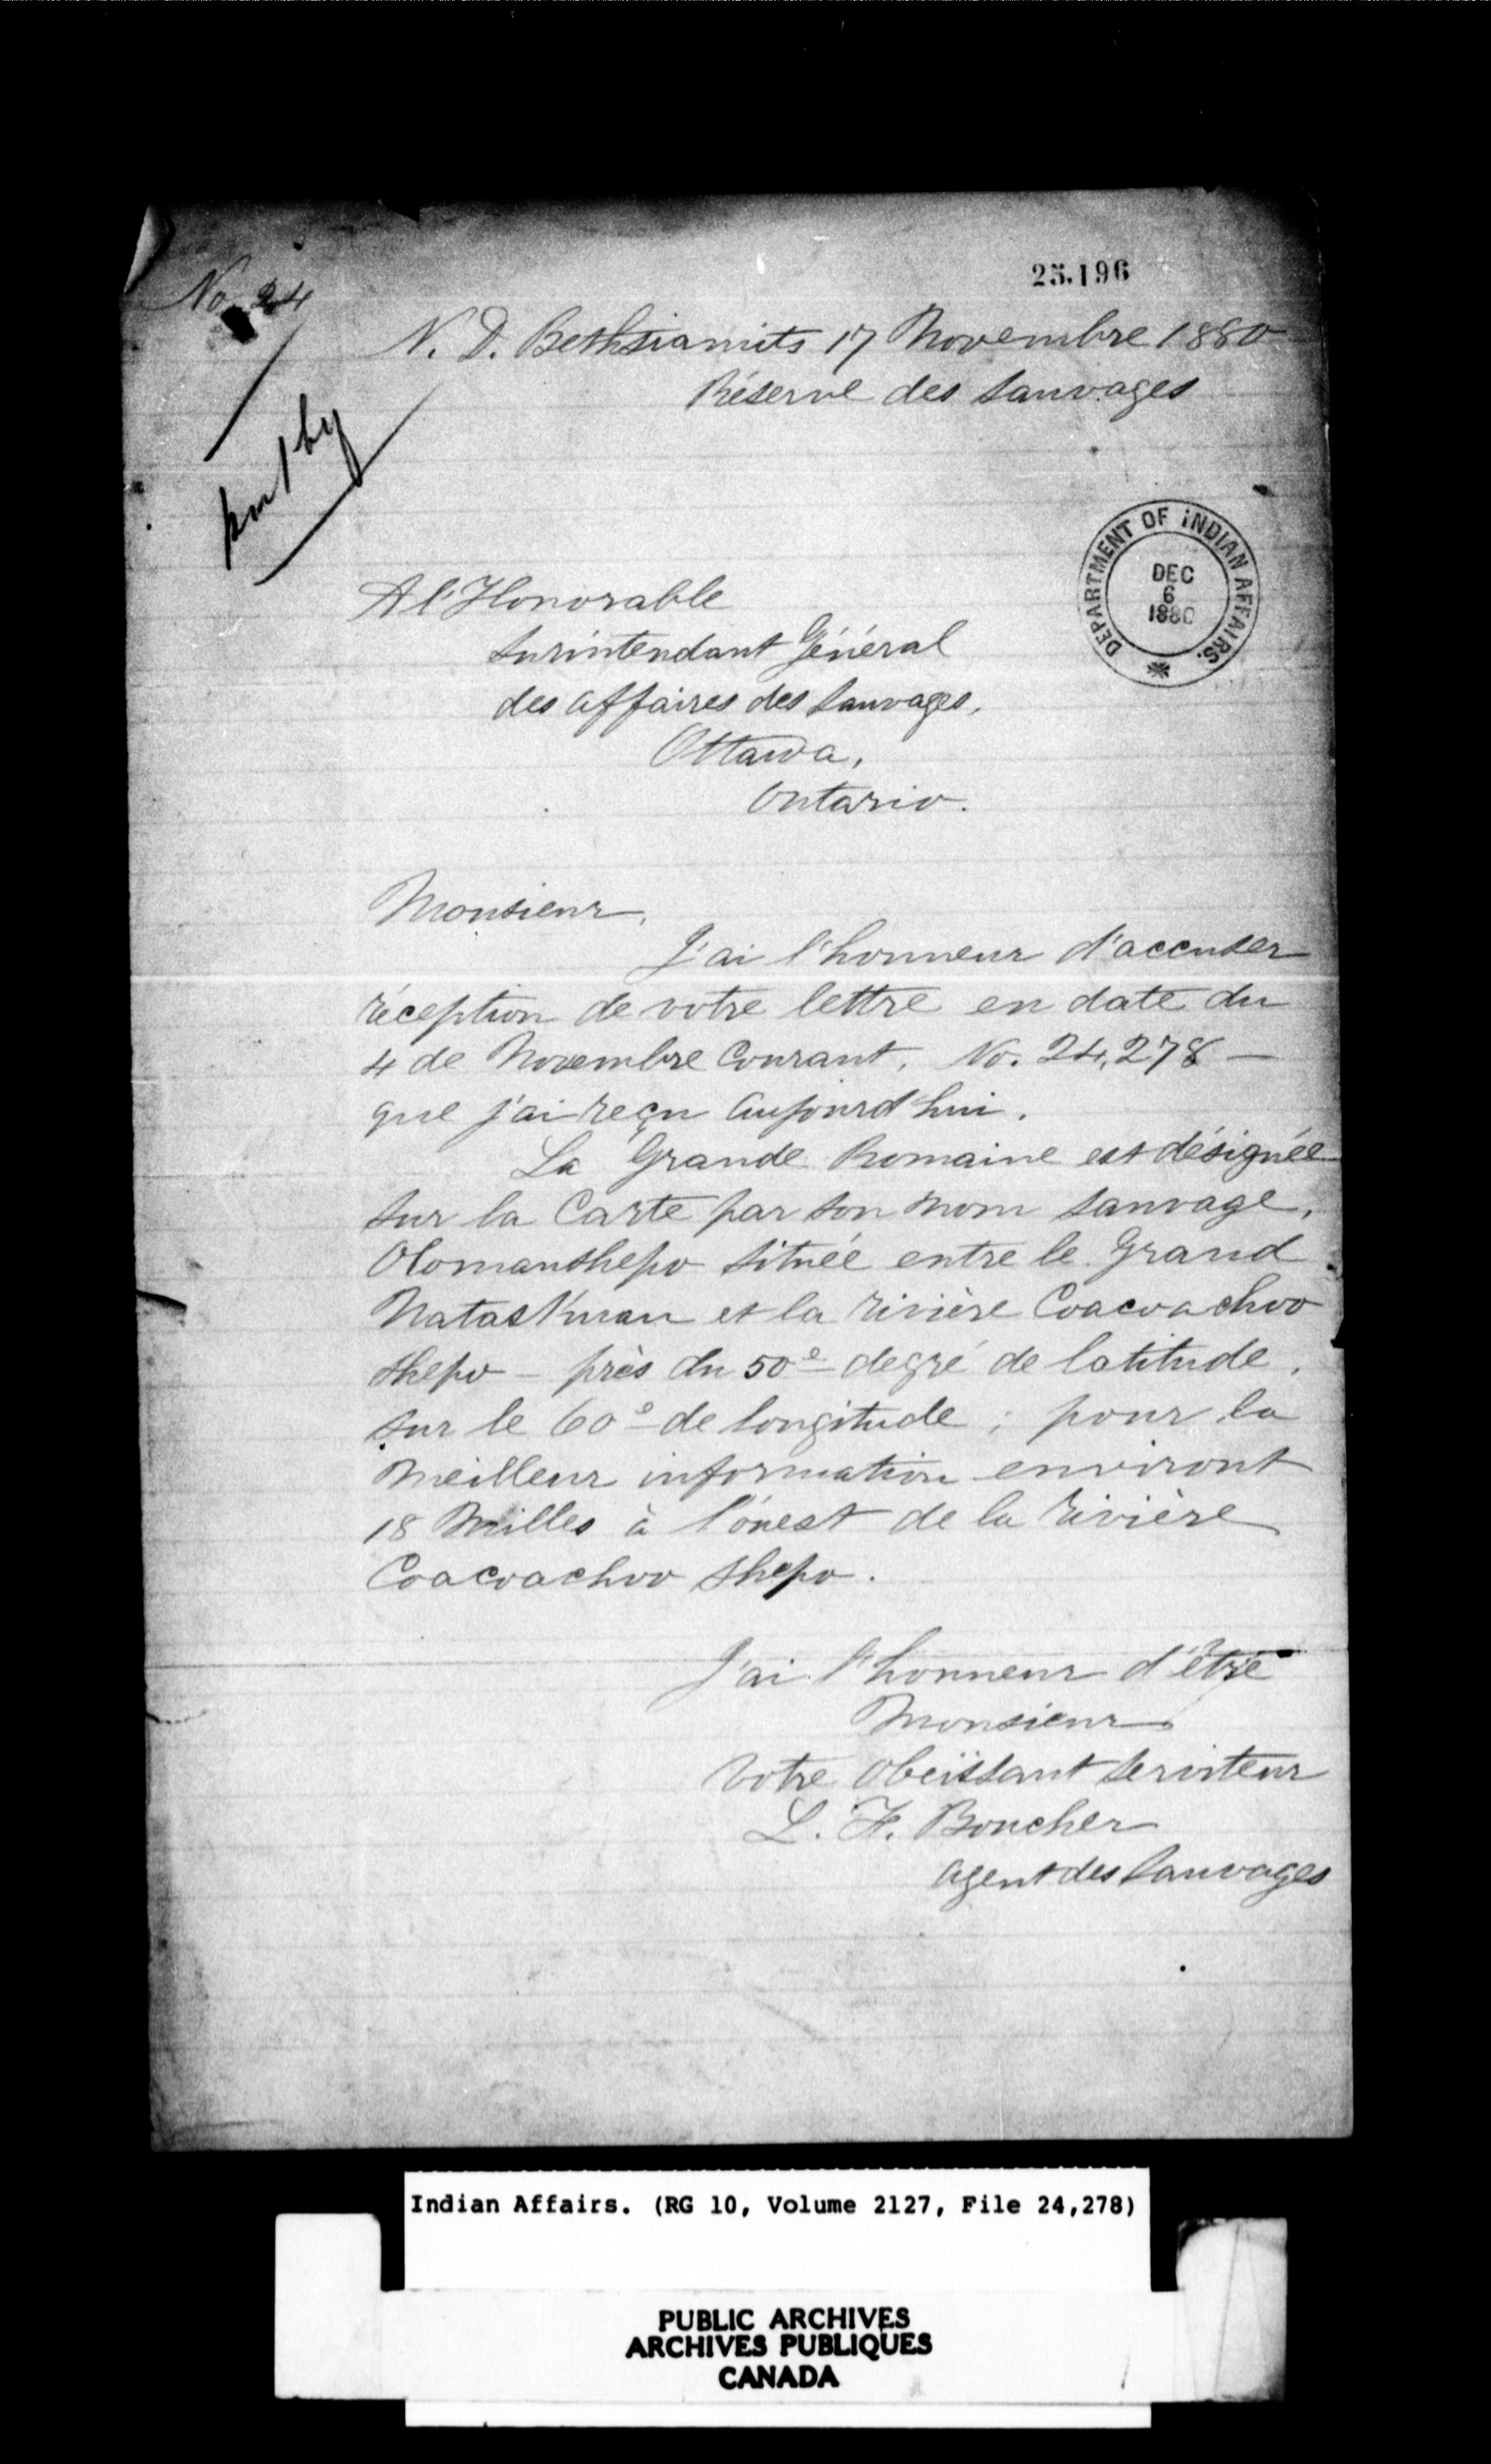 25.196
No. 24
N. D. Bethsiamits 17 Novembre 1880
Réserve des Sauvages
DEPARTMENT OF INDIAN AFFAIRS.
DEC
6
1880
A l'Honorable
Surintendant Général
des affaires des Sauvages,
Ottawa,
Ontario.
Monsieur,
J'ai l'honneur d'accuser
réception de votre lettre en date du
4 de Novembre Courant, No. 24,278 —
que j'ai reçu Aujourd'hui.
La Grande Romaine est désignée
sur la Carte par son nom sauvage,
Olomanshepo située entre le Grand
Nataskuan et la rivière Coacoachoo
shepo - près du 50e degré de latitude,
sur le 60e de longitude ; pour la
meilleur information environt
18 Milles à l'ouest de la rivière
Coacoachoo shepo.
J'ai l'honneur d'être
Monsieur
Votre Obeïssant Serviteur
L. F. Boucher
agent des Sauvages
Indian Affairs. (RG 10, Volume 2127, File 24,278)
PUBLIC ARCHIVES
ARCHIVES PUBLIQUES
CANADA